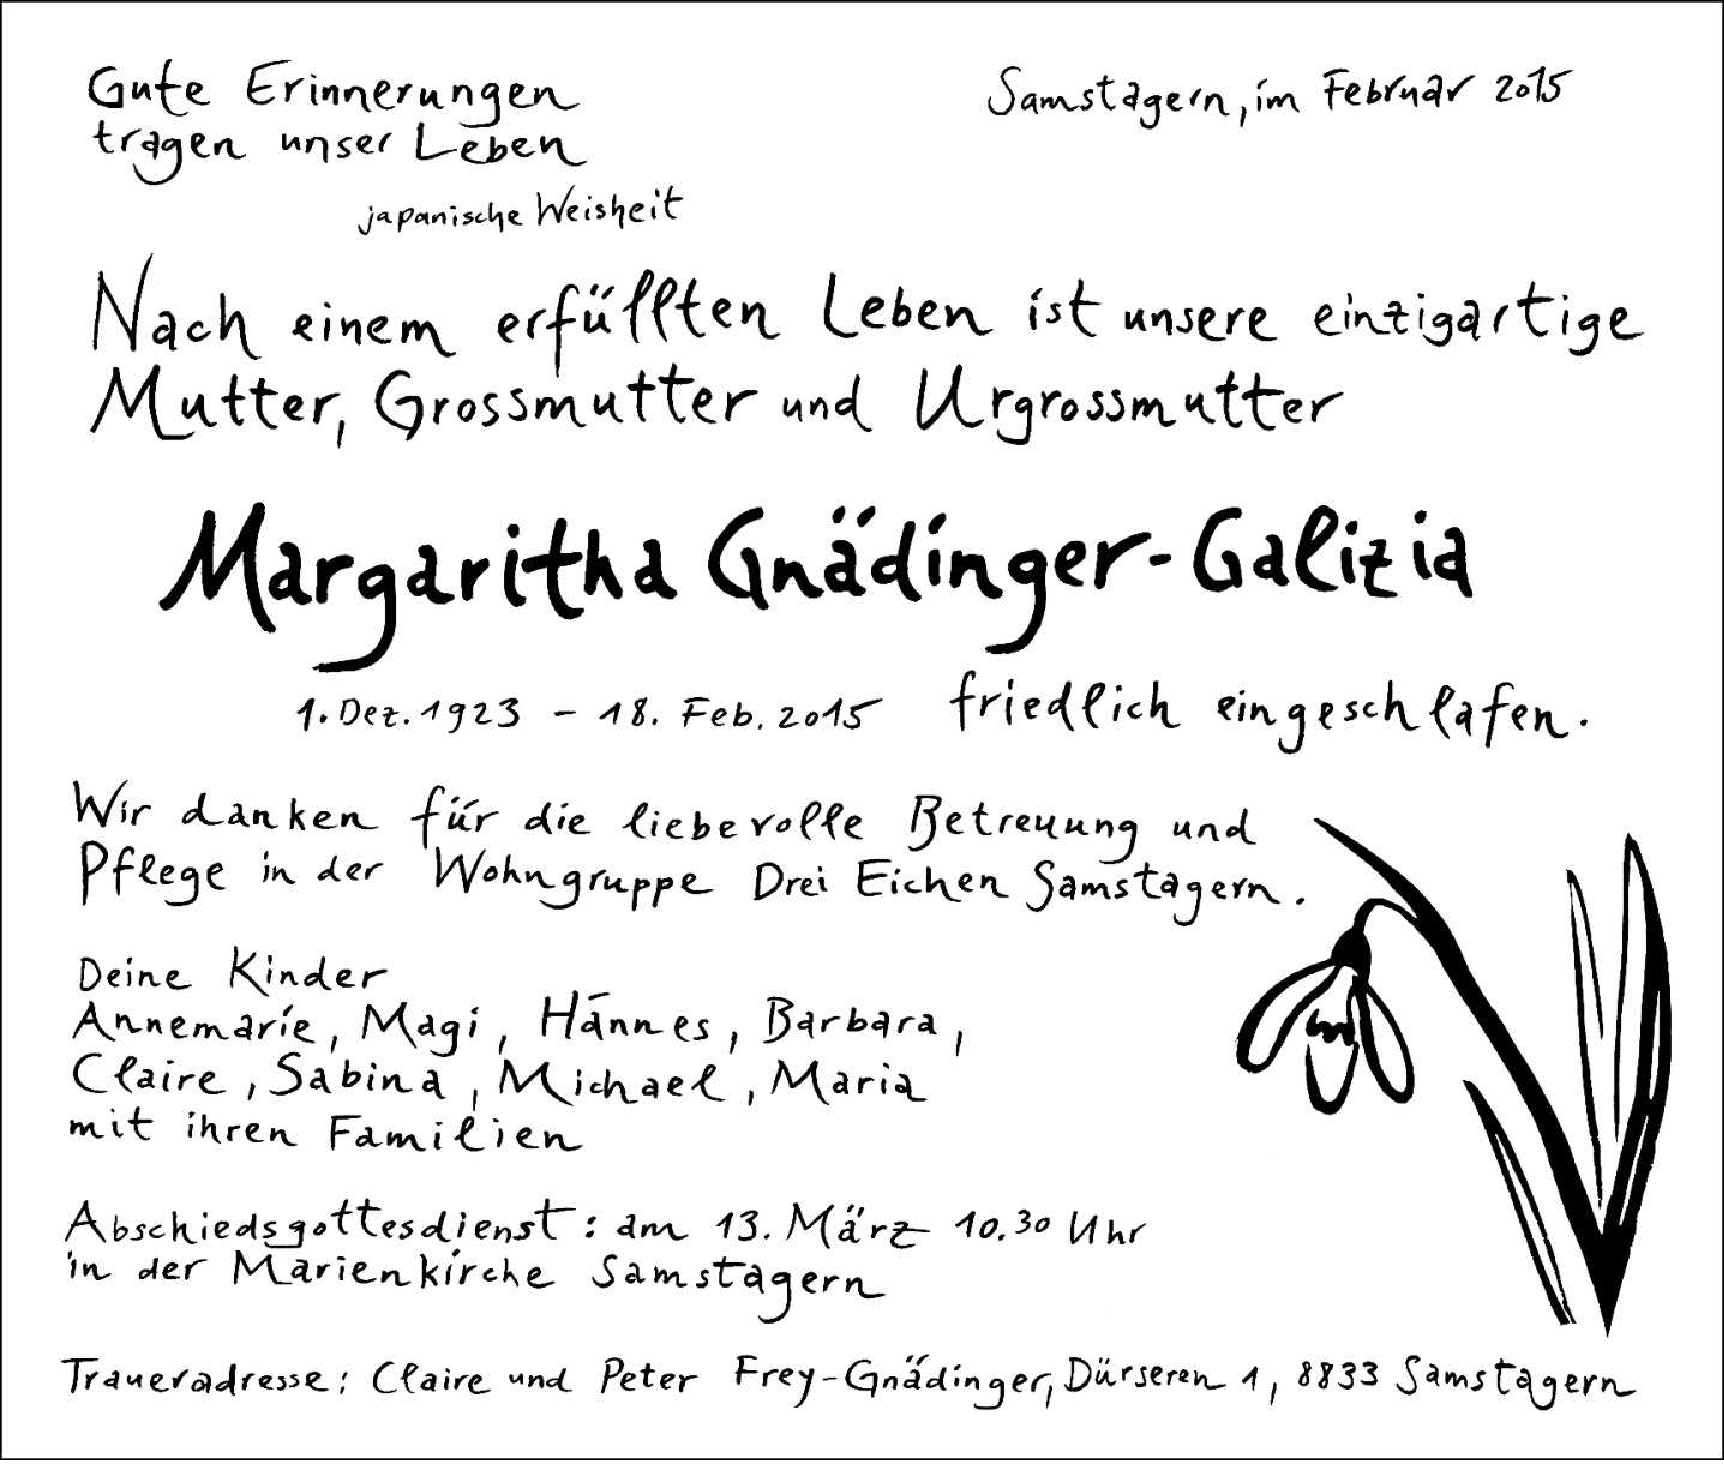 Gute Erinnerungen
tragen unser Leben
japanische Weisheit
Samstagern, im Februar 2015
Nach einem erfüllten Leben ist unsere einzigartige
Mutter, Grossmutter und Urgrossmutter
Margaritha Gnädinger-Galizia
1. Dez. 1923 – 18. Feb. 2015 friedlich eingeschlafen.
Wir danken für die liebevolle Betreuung und
Pflege in der Wohngruppe Drei Eichen Samstagern.
Deine Kinder
Annemarie, Magi, Hännes, Barbara,
Claire, Sabina, Michael, Maria
mit ihren Familien
Abschiedsgottesdienst: am 13. März 10.30 Uhr
in der Marienkirche Samstagern
Traueradresse: Claire und Peter Frey-Gnädinger, Dürseren 1, 8833 Samstagern